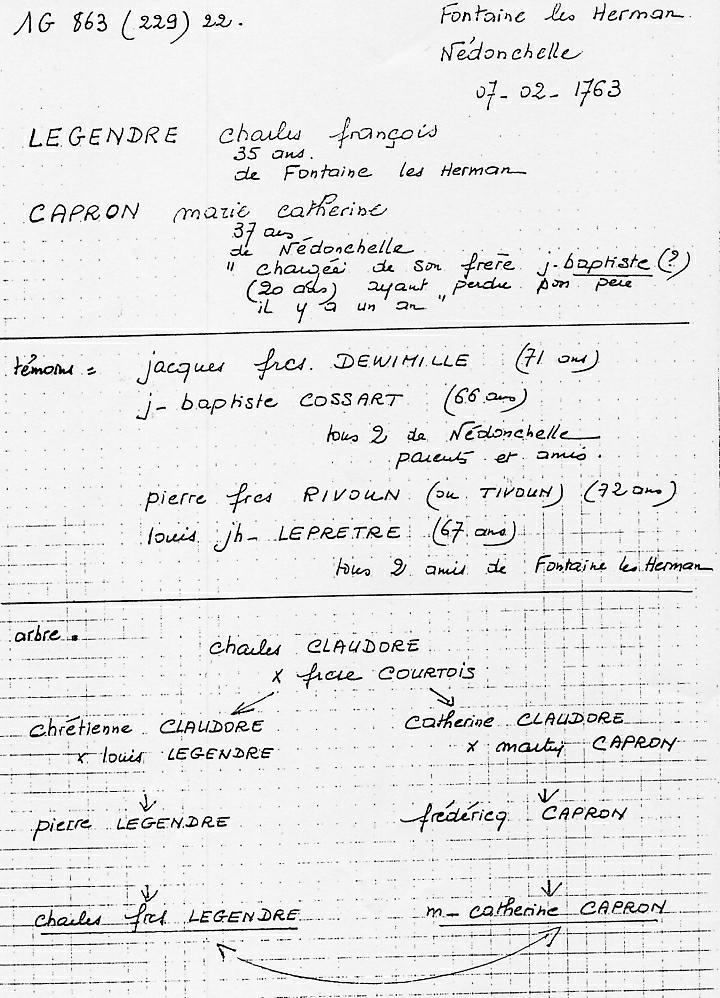 1G 863 (229) 22.
Fontaine les Herman
Nédonchelle
07-02-1763
LEGENDRE charles françois
35 ans.
de Fontaine les Herman
CAPRON marie catherine
37 ans
de Nédonchelle
" chargée de son frère j-baptiste (?)
(20 ans) ayant perdu son père
il y a un an "
témoins = jacques frcs. DEWIMILLE (71 ans)
j- baptiste COSSART (66 ans)
tous 2 de Nédonchelle
parents et amis.
pierre frcs RIVOUN (ou TIVOUN) (72 ans)
louis jh- LEPRETRE (67 ans)
tous 2 amis de Fontaine les Herman
arbre.
charles CLAUDORE
x frcse COURTOIS
chrétienne CLAUDORE
x louis LEGENDRE
catherine CLAUDORE
x martin CAPRON
pierre LEGENDRE
frédéricq CAPRON
charles frcs LEGENDRE
m- catherine CAPRON